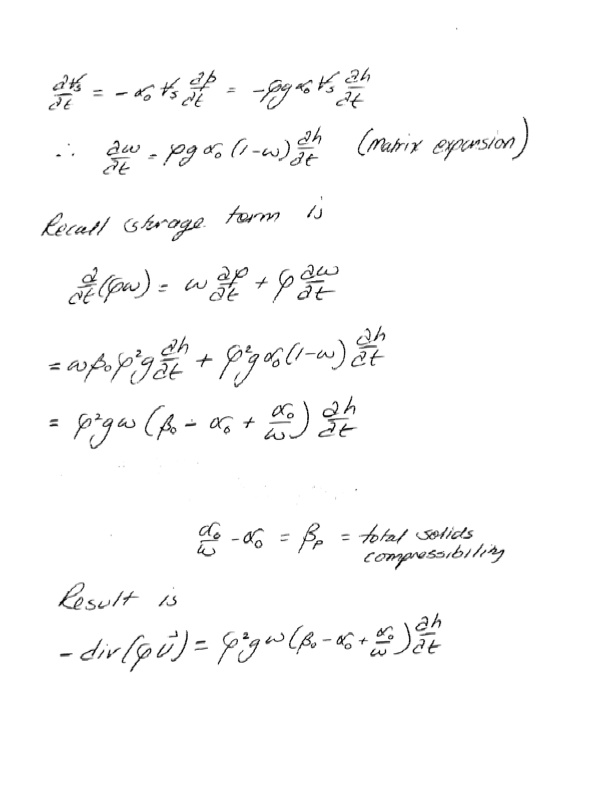 ∂V̶s/∂t = -α₀ V̶s ∂p/∂t = -ρgα₀ V̶s ∂h/∂t
∴ ∂ω/∂t = ρg α₀ (1-ω) ∂h/∂t (matrix expansion)
Recall storage term is
∂/∂t (ρω) = ω ∂ρ/∂t + ρ ∂ω/∂t
= ωβ₀ρ²g ∂h/∂t + ρ²gα₀(1-ω) ∂h/∂t
= ρ²gω (β₀ - α₀ + α₀/ω) ∂h/∂t
α₀/ω - α₀ = βₚ = total solids
compressibility
Result is
- div(ρu⃗) = ρ²gω (β₀ - α₀ + α₀/ω) ∂h/∂t